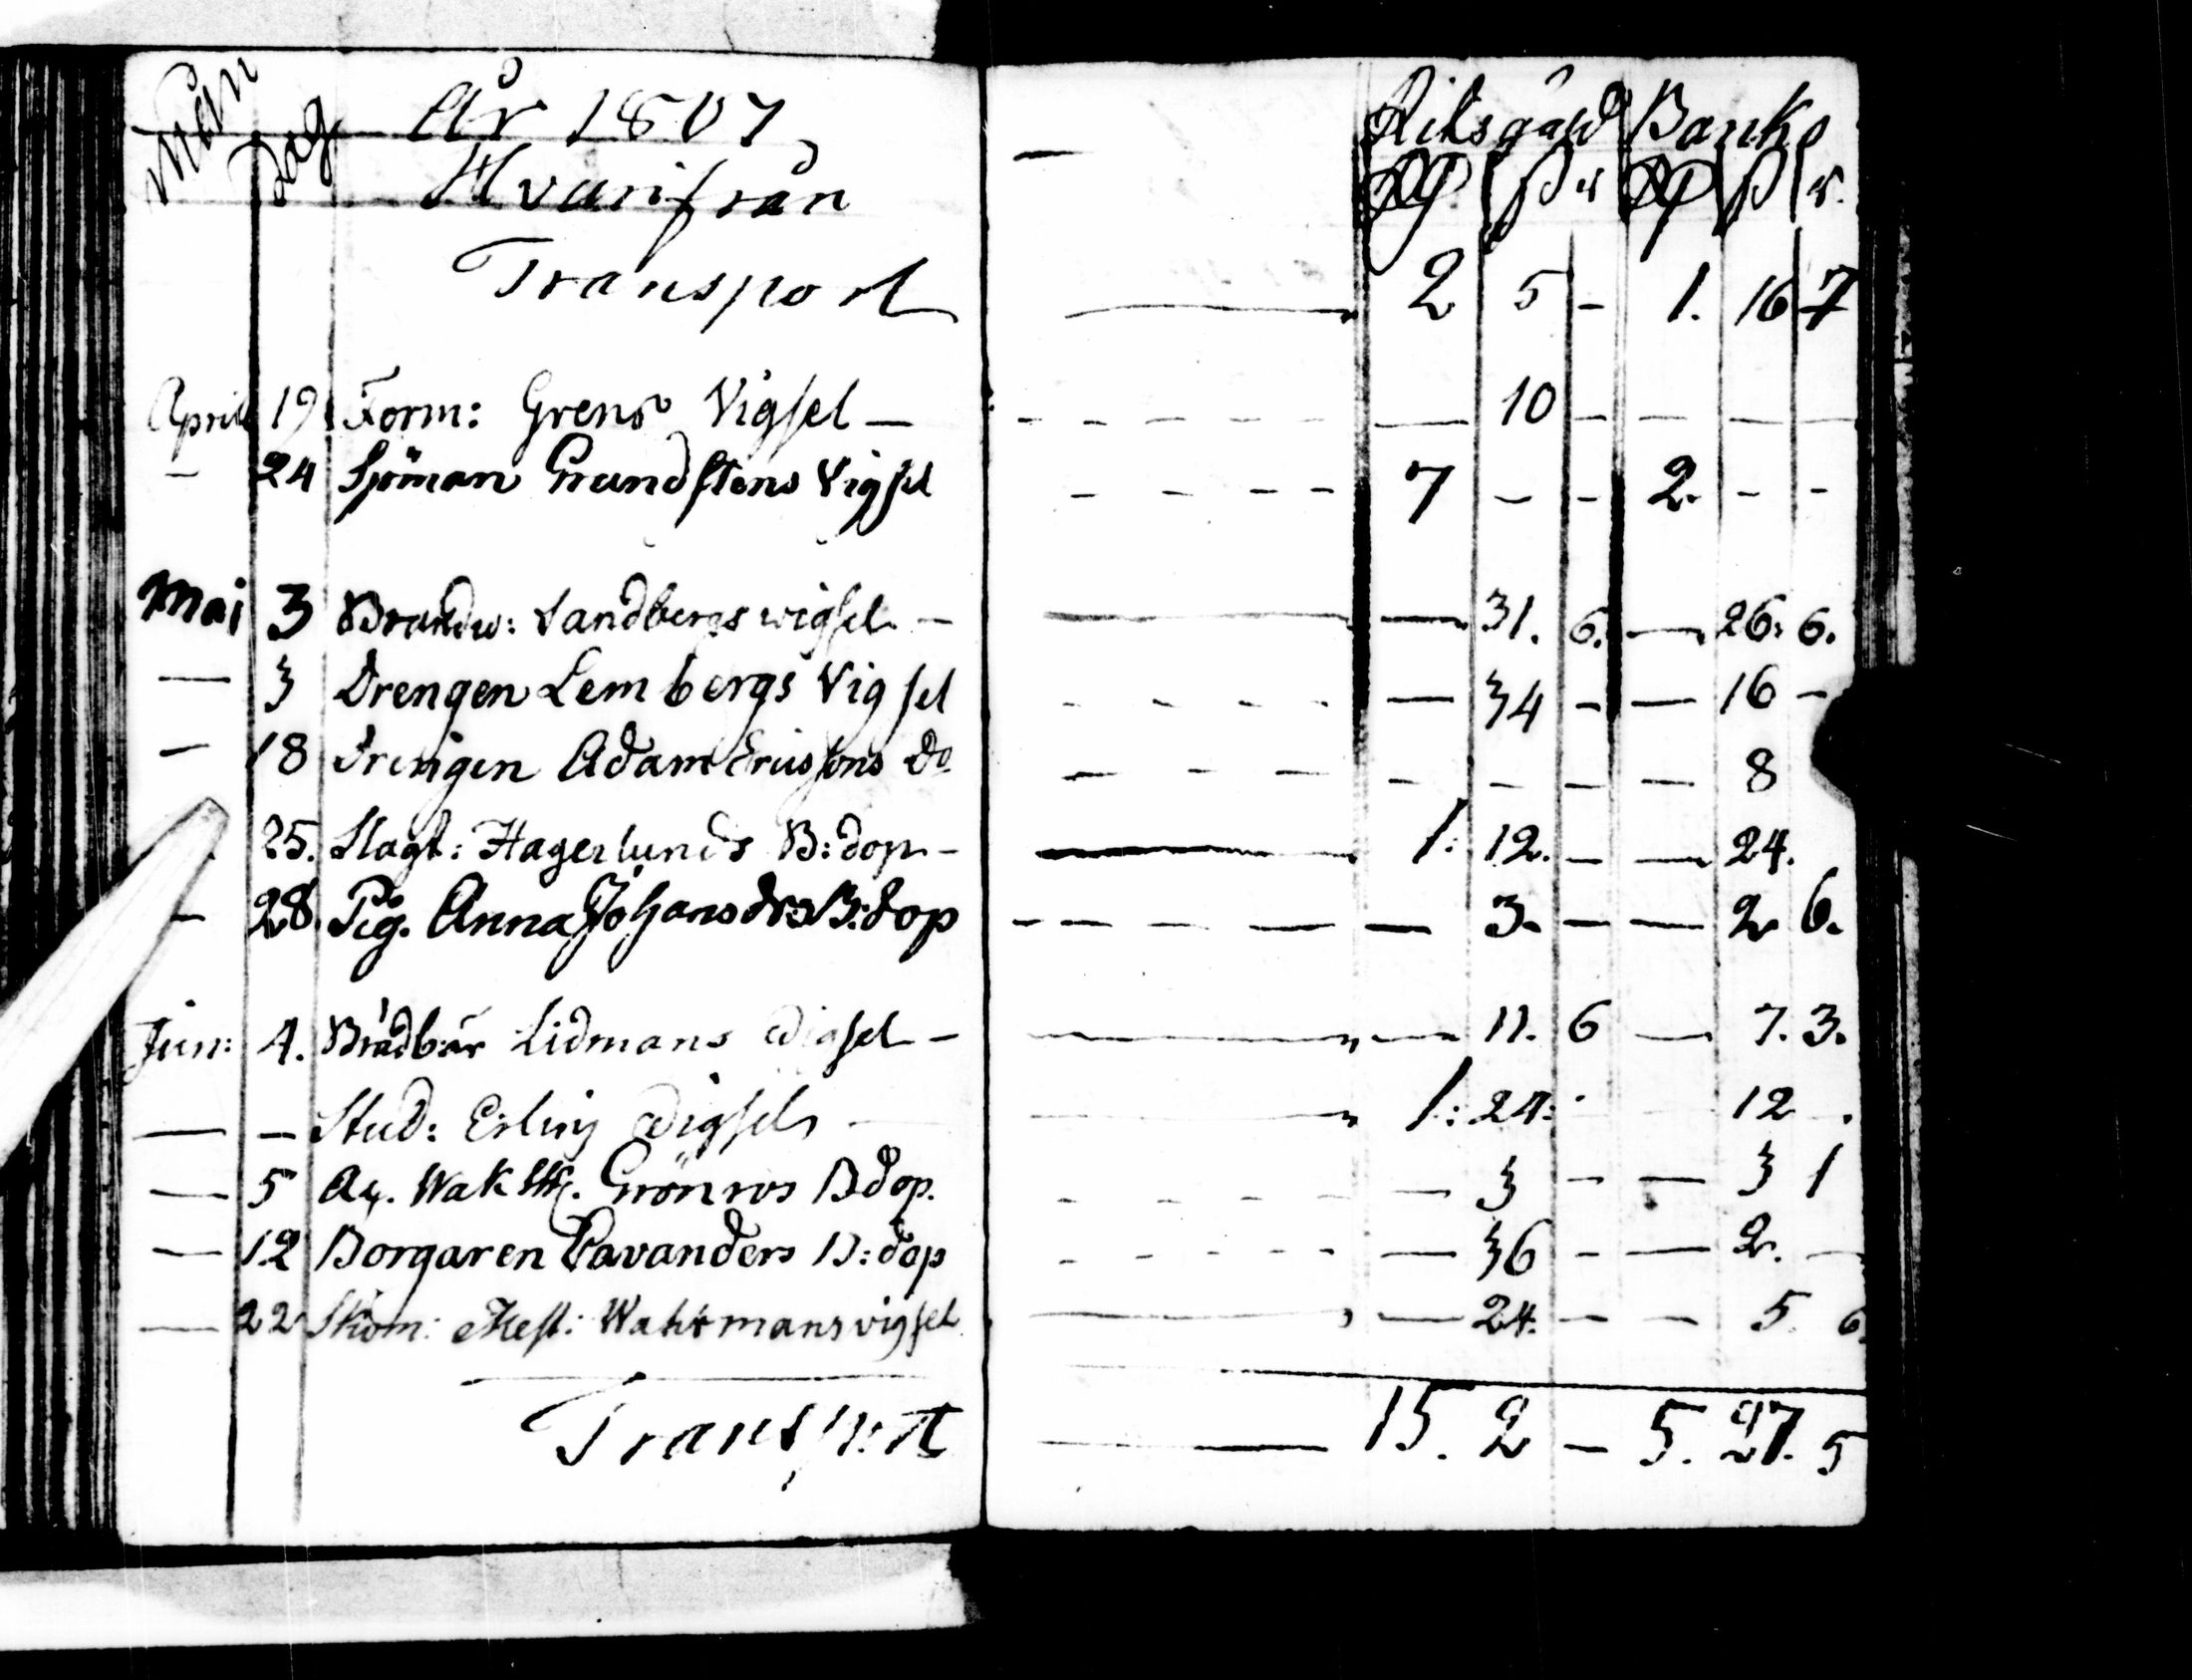 Mån Dag År 1807 Riksgäld Banko
Hvarifrån Rd ß r Rd ß r.
Transport 2 5 - 1. 16 7
April 19 Form: Grens Vigsel — 10 - - - -
- 24 Sjöman Grundstens Vigsel 7 - - 2. - -
Mai 3 Brandw: Sandbergs wigsel - — 31. 6. — 26. 6.
— 3 Drengen Lembergs Vigsel — 34 - — 16 -
- 18 Drengen Adam Ericssons do - - - — 8
25. Slagt: Hagerlunds B: dop - 1: 12. - — 24.
- 28. Pig. Anna Johansdrs B: dop — 3. - — 2 6.
Jun: 4. Brädbär Lidmans Vigsel - — 11. 6 — 7. 3.
— - Stud: Erling Vigsel 1: 24: 12 .
— 5 Waktm. Grönros B dop. — 3 - — 3 1
— 12 Borgaren Pavanders B: dop — 36 - — 2. —
— 22 Skom: Mest: Wahrmans vigsel — 24. - — 5. 6.
Transport 15. 2 - 5. 27. 5